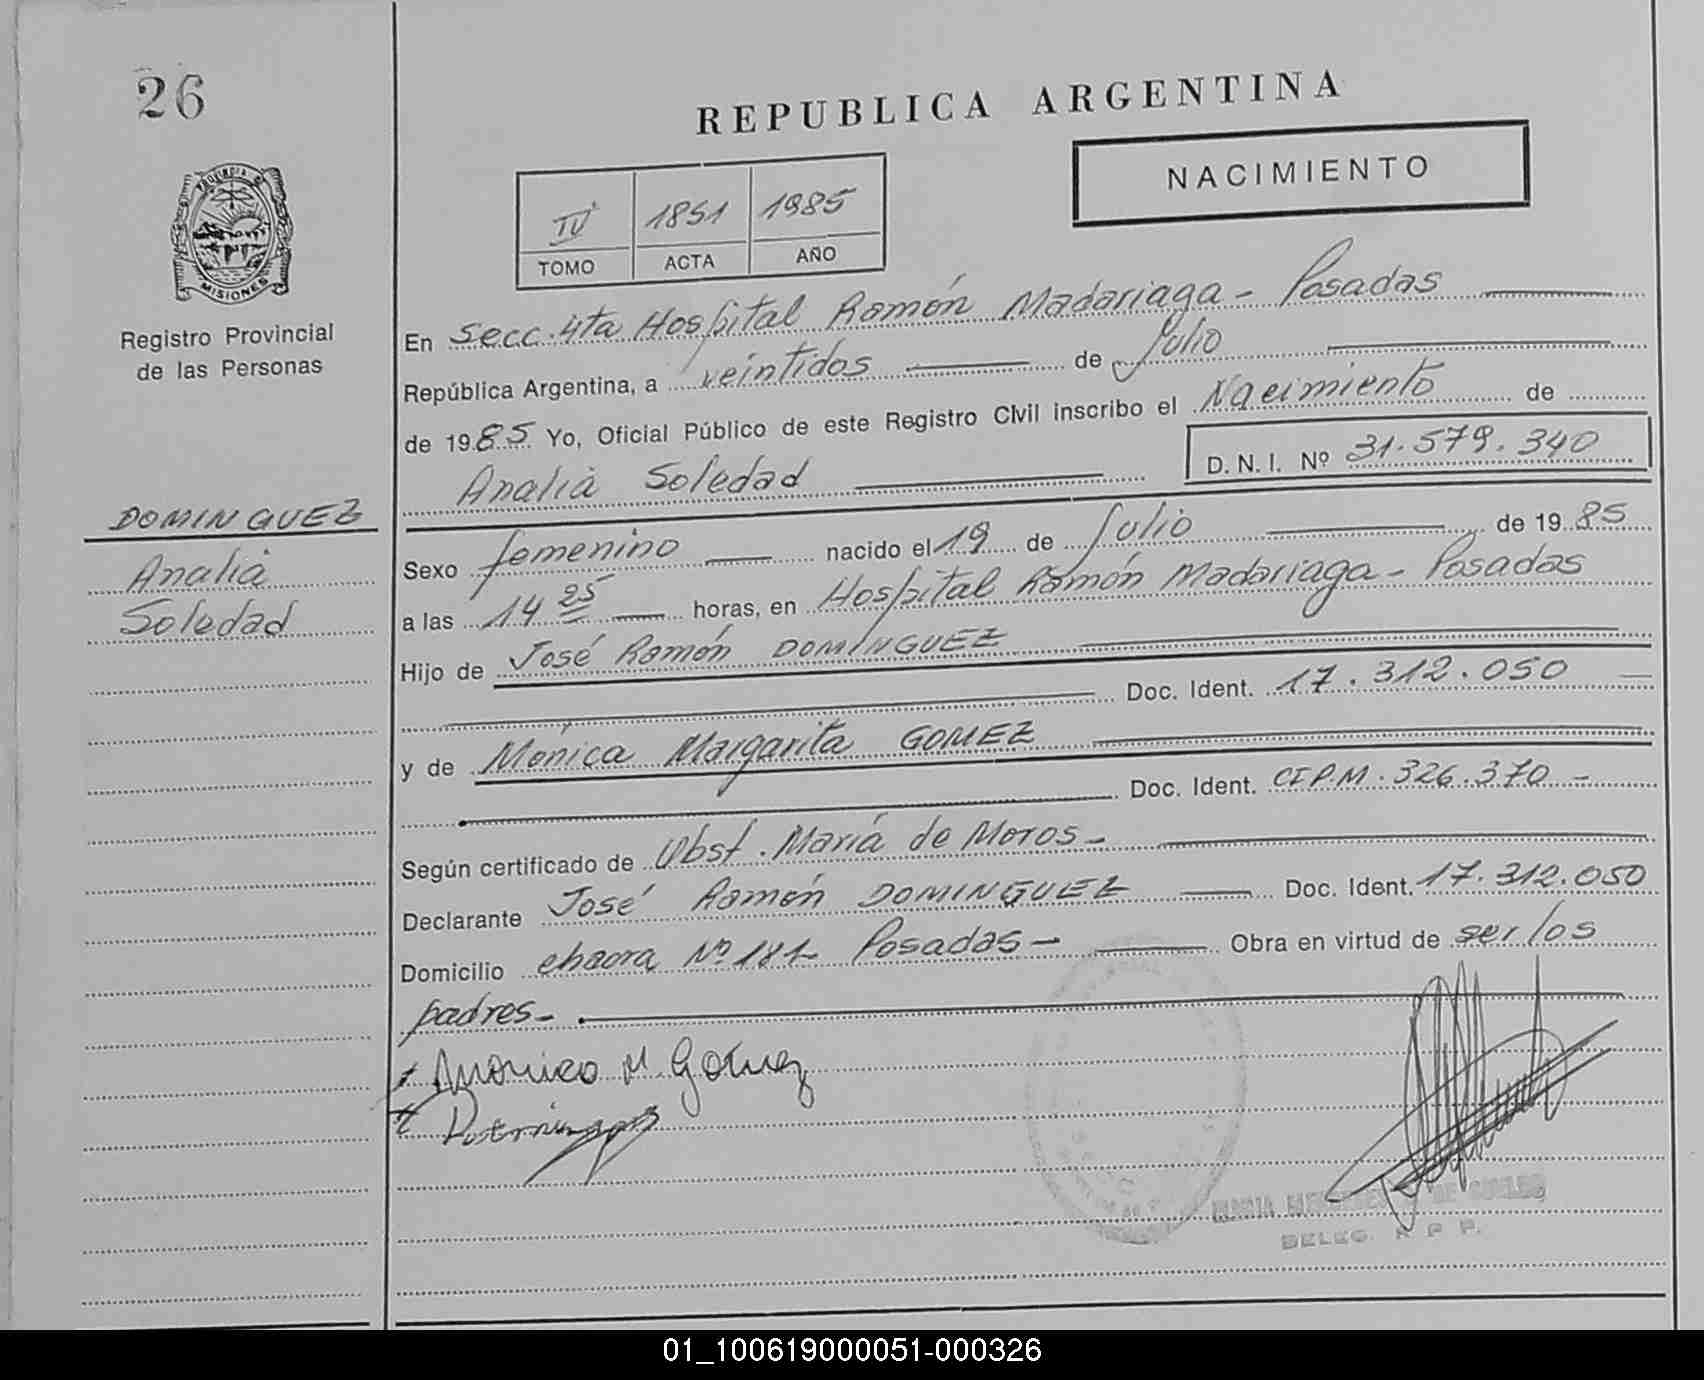 26
REPUBLICA ARGENTINA
NACIMIENTO
IV 1851 1985
TOMO ACTA AÑO
PROVINCIA DE
MISIONES
Registro Provincial
de las Personas
En Secc. 4ta Hospital Ramón Madariaga - Posadas
República Argentina, a veintidos de Julio
de 1985 Yo, Oficial Público de este Registro Civil inscribo el Nacimiento de
Analia Soledad
D. N. I. Nº 31.579.340
DOMINGUEZ
Analia
Soledad
Sexo femenino nacido el 19 de Julio de 1985
a las 14 25 horas, en Hospital Ramón Madariaga - Posadas
Hijo de José Ramón DOMINGUEZ
Doc. Ident. 17.312.050
y de Mónica Margarita GOMEZ
Doc. Ident. CIP.M. 326.370 -
Según certificado de Obst. María de Moros -
Declarante José Ramón DOMINGUEZ Doc. Ident. 17.312.050
Domicilio chacra Nº 181 Posadas - Obra en virtud de ser los
padres -
Monica M. Gomez
MARIA DE SUELDO
DELEG. R P P.
01_100619000051-000326